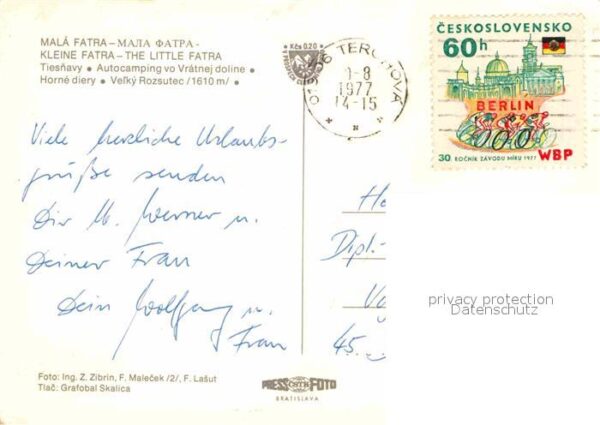 MALÁ FATRA – МАЛА ФАТРА –
KLEINE FATRA – THE LITTLE FATRA
Tiesňavy • Autocamping vo Vrátnej doline •
Horné diery • Veľký Rozsutec /1610 m/ •
Kčs 0,20
013 06 TERCHOVÁ
-8
1977
14-15
ČESKOSLOVENSKO
60h
BERLIN
30. ROČNÍK ZÁVODU MÍRU 1977 WBP
Viele herzliche Urlaubs-
grüße senden
Dir, Werner u.
Deiner Frau
Dein Wolfgang u.
Frau
Dipl.-
45.
privacy protection
Datenschutz
Foto: Ing. Z. Zibrin, F. Maleček /2/, F. Lašut
Tlač: Grafobal Skalica
PRESS ČSTK FOTO
BRATISLAVA